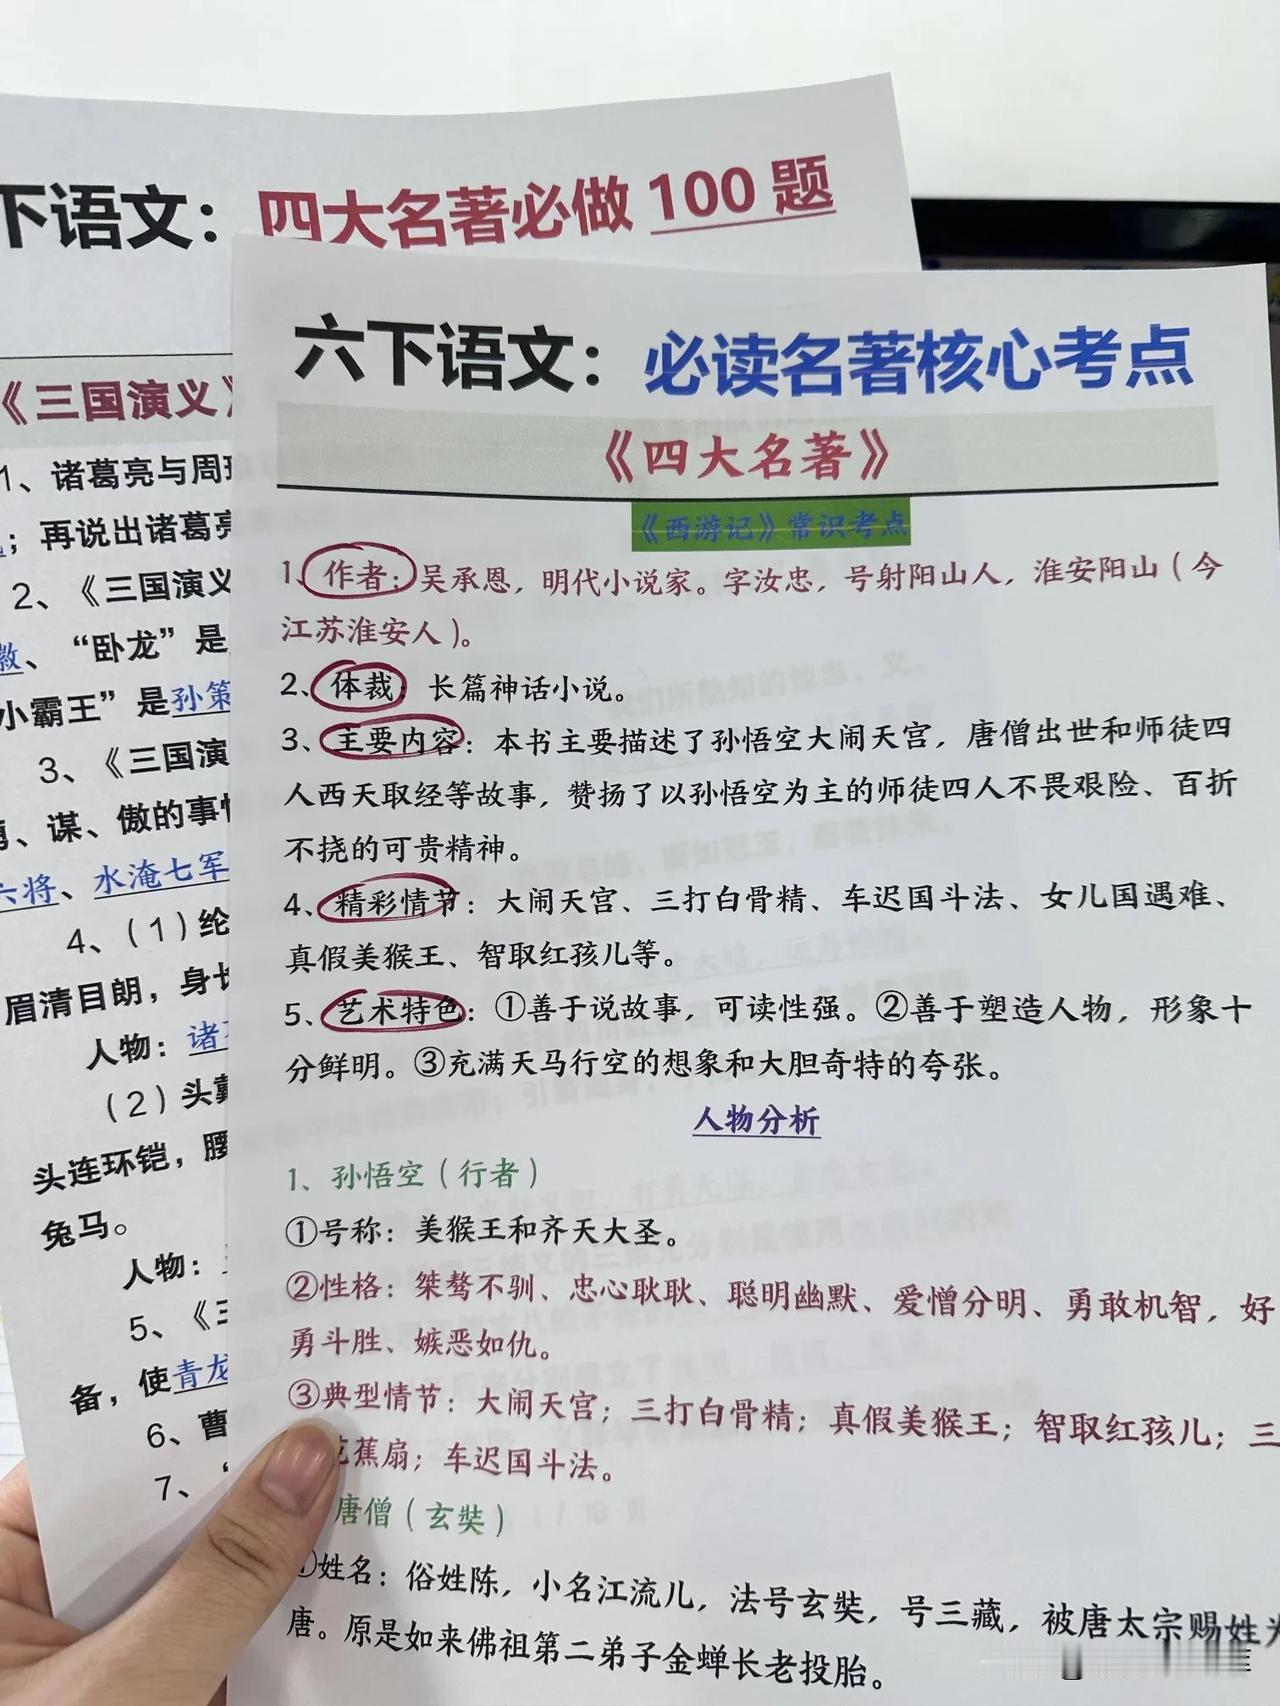 下语文：四大名著必做100题
《三国演义》
1、诸葛亮与周
；再说出诸葛亮
2、《三国演义
、“卧龙”是
小霸王”是孙策
3、《三国演
、谋、傲的事情
六将、水淹七军
4、（1）纶
眉清目朗，身长
人物：诸
（2）头戴
头连环铠，腰
兔马。
人物：
5、《三
备，使青龙
6、曹
7、“
六下语文：必读名著核心考点
《四大名著》
《西游记》常识考点
1、作者：吴承恩，明代小说家。字汝忠，号射阳山人，淮安阳山（今
江苏淮安人）。
2、体裁：长篇神话小说。
3、主要内容：本书主要描述了孙悟空大闹天宫，唐僧出世和师徒四
人西天取经等故事，赞扬了以孙悟空为主的师徒四人不畏艰险、百折
不挠的可贵精神。
4、精彩情节：大闹天宫、三打白骨精、车迟国斗法、女儿国遇难、
真假美猴王、智取红孩儿等。
5、艺术特色：①善于说故事，可读性强。②善于塑造人物，形象十
分鲜明。③充满天马行空的想象和大胆奇特的夸张。
人物分析
1、孙悟空（行者）
①号称：美猴王和齐天大圣。
②性格：桀骜不驯、忠心耿耿、聪明幽默、爱憎分明、勇敢机智，好
勇斗胜、嫉恶如仇。
③典型情节：大闹天宫；三打白骨精；真假美猴王；智取红孩儿；三
芭蕉扇；车迟国斗法。
唐僧（玄奘）
①姓名：俗姓陈，小名江流儿，法号玄奘，号三藏，被唐太宗赐姓为
唐。原是如来佛祖第二弟子金蝉长老投胎。